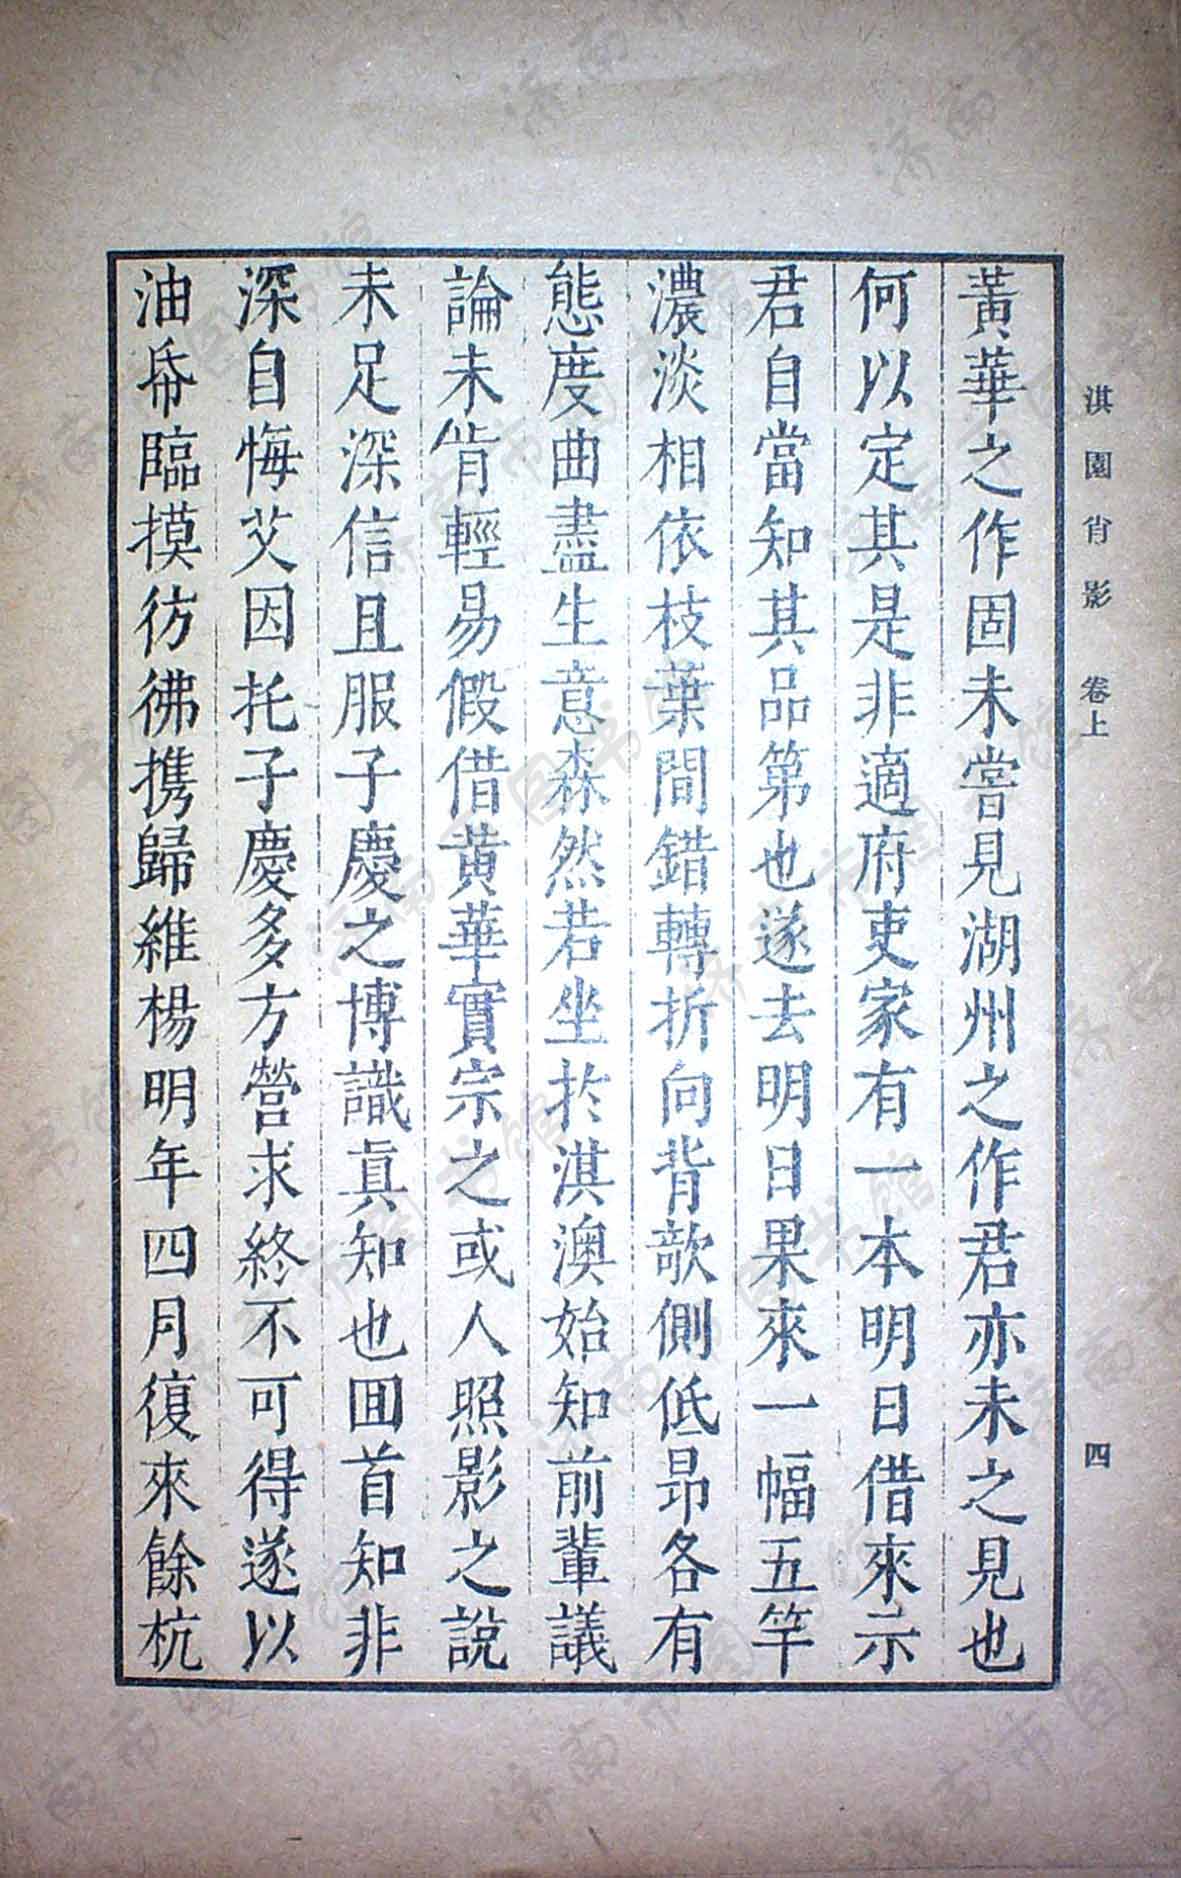 淇園肖影　卷上　四
黃華之作固未嘗見湖州之作君亦未之見也
何以定其是非適府吏家有一本明日借來示
君自當知其品第也遂去明日果來一幅五竿
濃淡相依枝葉間錯轉折向背欹側低昂各有
態度曲盡生意森然若坐於淇澳始知前輩議
論未肯輕易假借黄華實宗之或人照影之說
未足深信且服子慶之博識眞知也囬首知非
深自悔艾因托子慶多方營求終不可得遂以
油帋臨摸彷彿携歸維楊明年四月復來餘杭
济南市图书馆